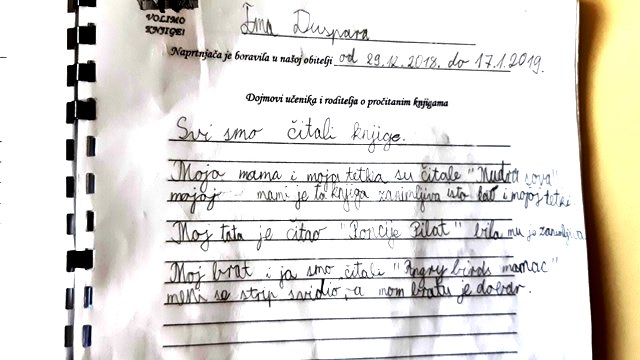 VOLIMO
KNJIGE!
Ema Duspara
Naprtnjača je boravila u našoj obitelji od 29.12.2018. do 17.1.2019.
Dojmovi učenika i roditelja o pročitanim knjigama
Svi smo čitali knjige.
Moja mama i moja tetka su čitale "Mudra sova"
mojoj mami je ta knjiga zanimljiva isto kao i mojoj tetki.
Moj tata je čitao "Poncije Pilat" bila mu je zanimljiva
Moj brat i ja smo čitali "Angry birds mamac"
meni se strip svidio, a mom bratu je dobar.